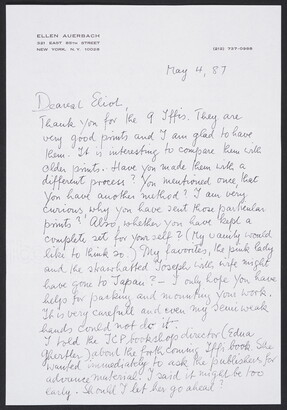 ELLEN AUERBACH
NEW YORK, N.Y. 10028
May 4, 87
Dearest Eliot,
Thank you for the 9 Iffis. They are
very good prints and I am glad to have
them. It is interesting to compare them with
older prints. Have you made them with a
different process? You mentioned once that
you have another method? I am very
curious why you have sent those particular
prints? Also, whether you have kept a
complete set for your self? (My vanity would
like to think so.) My favorites, the pink lady
and the strawhatted Joseph with wife might
have gone to Japan? – I only hope you have
help for packing and mounting your work.
It is very carefull and even my semi weak
hands could not do it.
I told the ICP bookshop director (Edna
) about the forthcoming Iffi book. She
wanted immediately to ask the publishers for
advance material. I said it might be too
early. Should I let her go ahead?